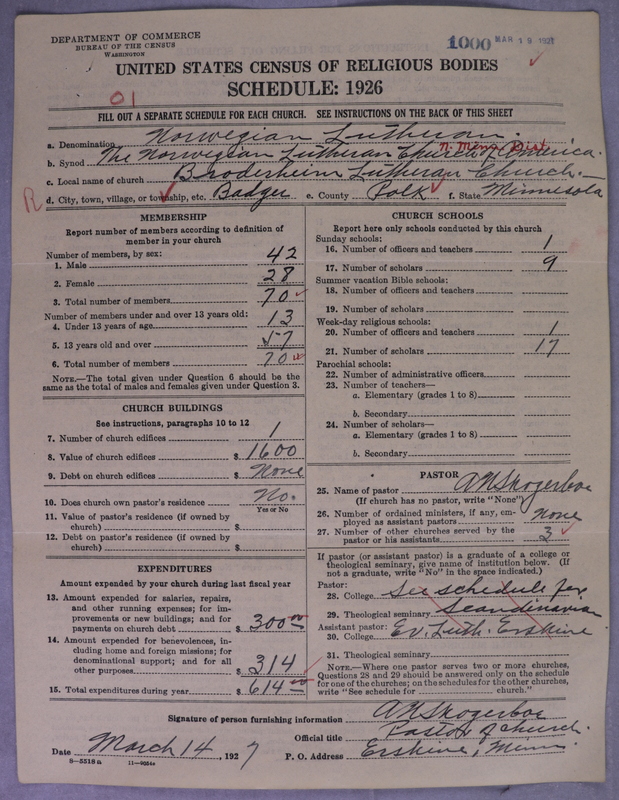 DEPARTMENT OF COMMERCE
BUREAU OF THE CENSUS
WASHINGTON
1000 MAR 19 1927
UNITED STATES CENSUS OF RELIGIOUS BODIES
SCHEDULE: 1926
01
FILL OUT A SEPARATE SCHEDULE FOR EACH CHURCH. SEE INSTRUCTIONS ON THE BACK OF THIS SHEET
a. Denomination Norwegian Lutheran.
N. Minn. Dist.
b. Synod The Norwegian Lutheran Church of America.
c. Local name of church Broderheim Lutheran Church.
R
d. City, town, village, or township, etc. Badger e. County Polk f. State Minnesota
MEMBERSHIP
Report number of members according to definition of
member in your church
Number of members, by sex:
1. Male 42
2. Female 28
3. Total number of members 70
Number of members under and over 13 years old:
4. Under 13 years of age 13
5. 13 years old and over 57
6. Total number of members 70
NOTE.—The total given under Question 6 should be the
same as the total of males and females given under Question 3.
CHURCH BUILDINGS
See instructions, paragraphs 10 to 12
7. Number of church edifices 1
8. Value of church edifices $ 1600
9. Debt on church edifices $ None
10. Does church own pastor's residence No.
Yes or No
11. Value of pastor's residence (if owned by
church) $
12. Debt on pastor's residence (if owned by
church) $
EXPENDITURES
Amount expended by your church during last fiscal year
13. Amount expended for salaries, repairs,
and other running expenses; for im-
provements or new buildings; and for
payments on church debt $ 300 00
14. Amount expended for benevolences, in-
cluding home and foreign missions; for
denominational support; and for all
other purposes $ 314
15. Total expenditures during year $ 614 00
CHURCH SCHOOLS
Report here only schools conducted by this church
Sunday schools:
16. Number of officers and teachers 1
17. Number of scholars 9
Summer vacation Bible schools:
18. Number of officers and teachers
19. Number of scholars
Week-day religious schools:
20. Number of officers and teachers 1
21. Number of scholars 17
Parochial schools:
22. Number of administrative officers
23. Number of teachers—
a. Elementary (grades 1 to 8)
b. Secondary
24. Number of scholars—
a. Elementary (grades 1 to 8)
b. Secondary
PASTOR
25. Name of pastor A N Skogerboe
(If church has no pastor, write "None")
26. Number of ordained ministers, if any, em-
ployed as assistant pastors None
27. Number of other churches served by the
pastor or his assistants 3
If pastor (or assistant pastor) is a graduate of a college or
theological seminary, give name of institution below. (If
not a graduate, write "No" in the space indicated.)
Pastor:
28. College See schedule for
29. Theological seminary Scandinavian
Assistant pastor:
30. College Ev. Luth. Erskine
31. Theological seminary
NOTE.—Where one pastor serves two or more churches,
Questions 28 and 29 should be answered only on the schedule
for one of the churches; on the schedules for the other churches,
write "See schedule for church."
Signature of person furnishing information A N Skogerboe
Official title Pastor of Church.
Date March 14, 1927 P. O. Address Erskine, Minn.
8—5518 a 11—9054a